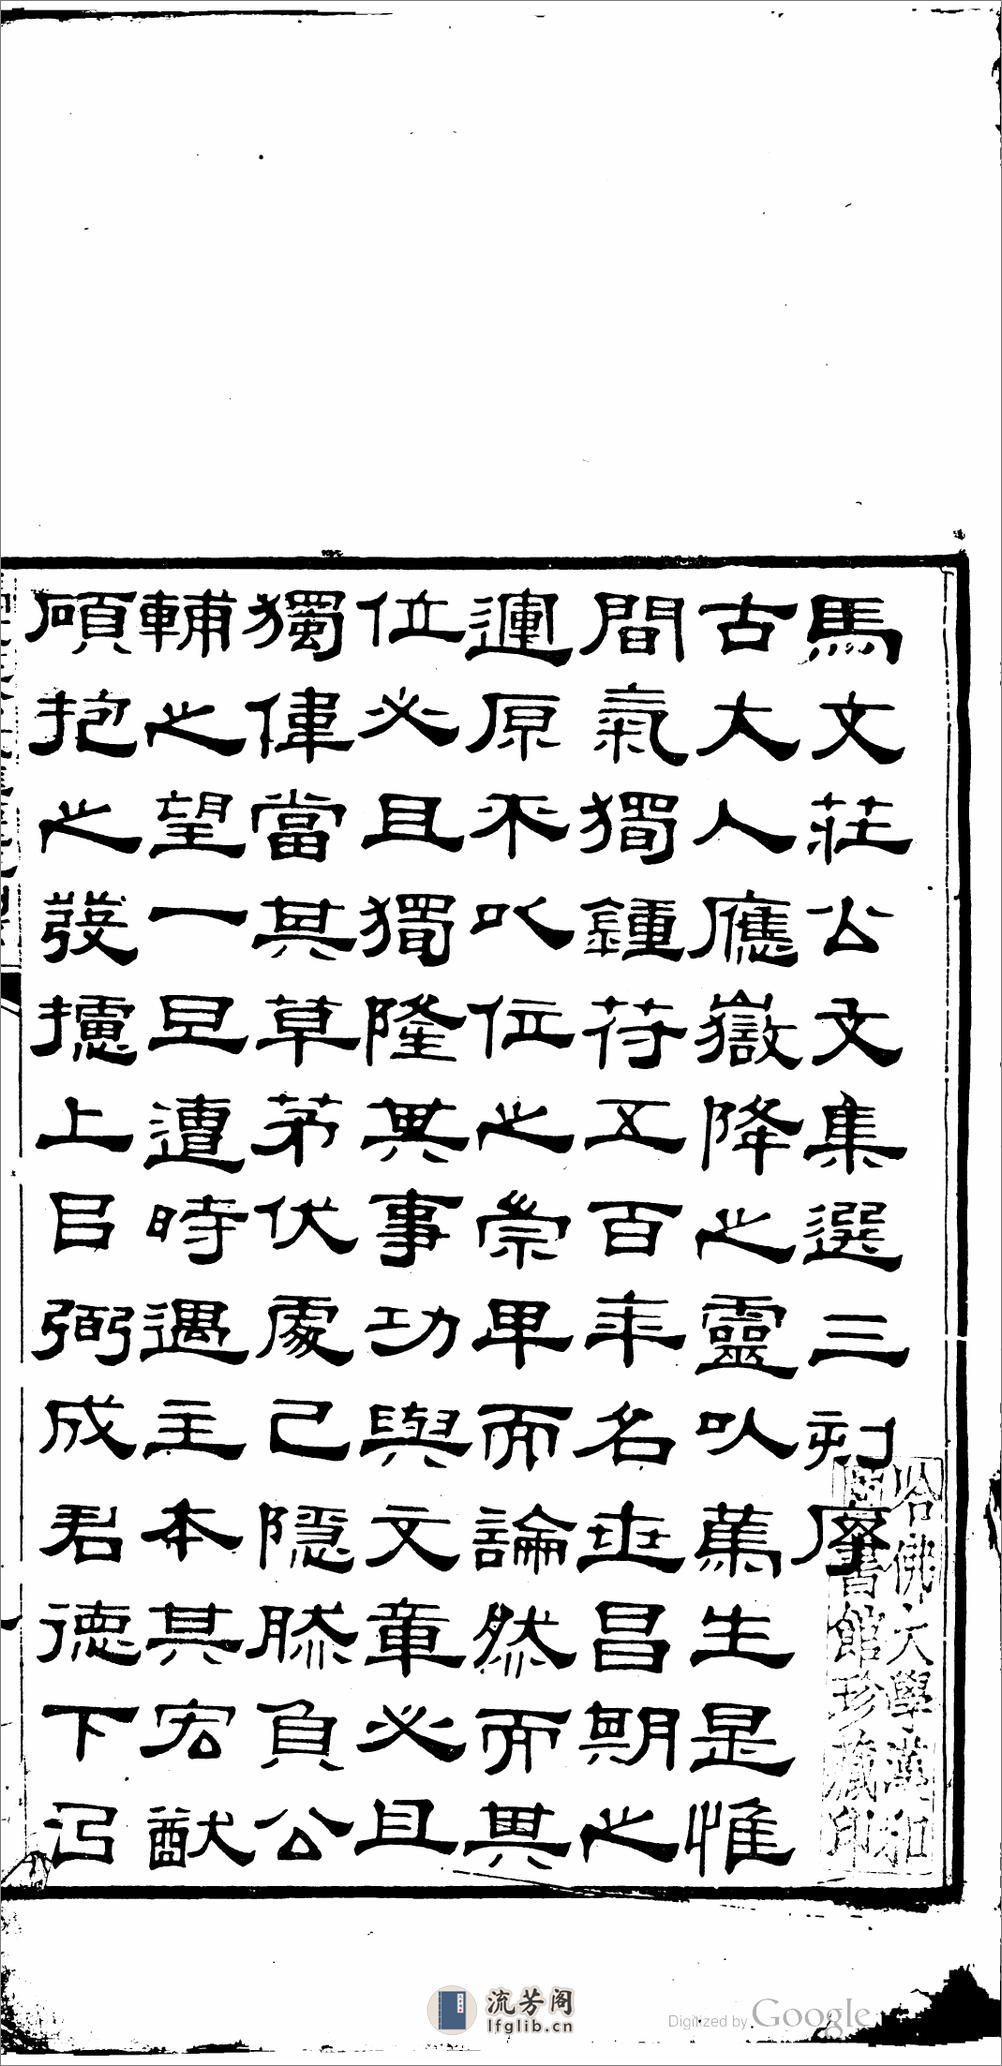 馬文莊公文集選三刻序
古大人應嶽降之靈以篤生是惟
間氣獨鍾待五百年名世昌期之
運原不以位之崇卑而論然而其
位必且獨隆其事功與文章必且
獨偉當其草茅伏處已隱然負公
輔之望一旦遭時遇主本其宏猷
碩抱之發攄上㠯弼成君德下㠯
哈佛大學漢和
圖書館珍藏印
流芳阁
lfglib.cn
Digitized by Google